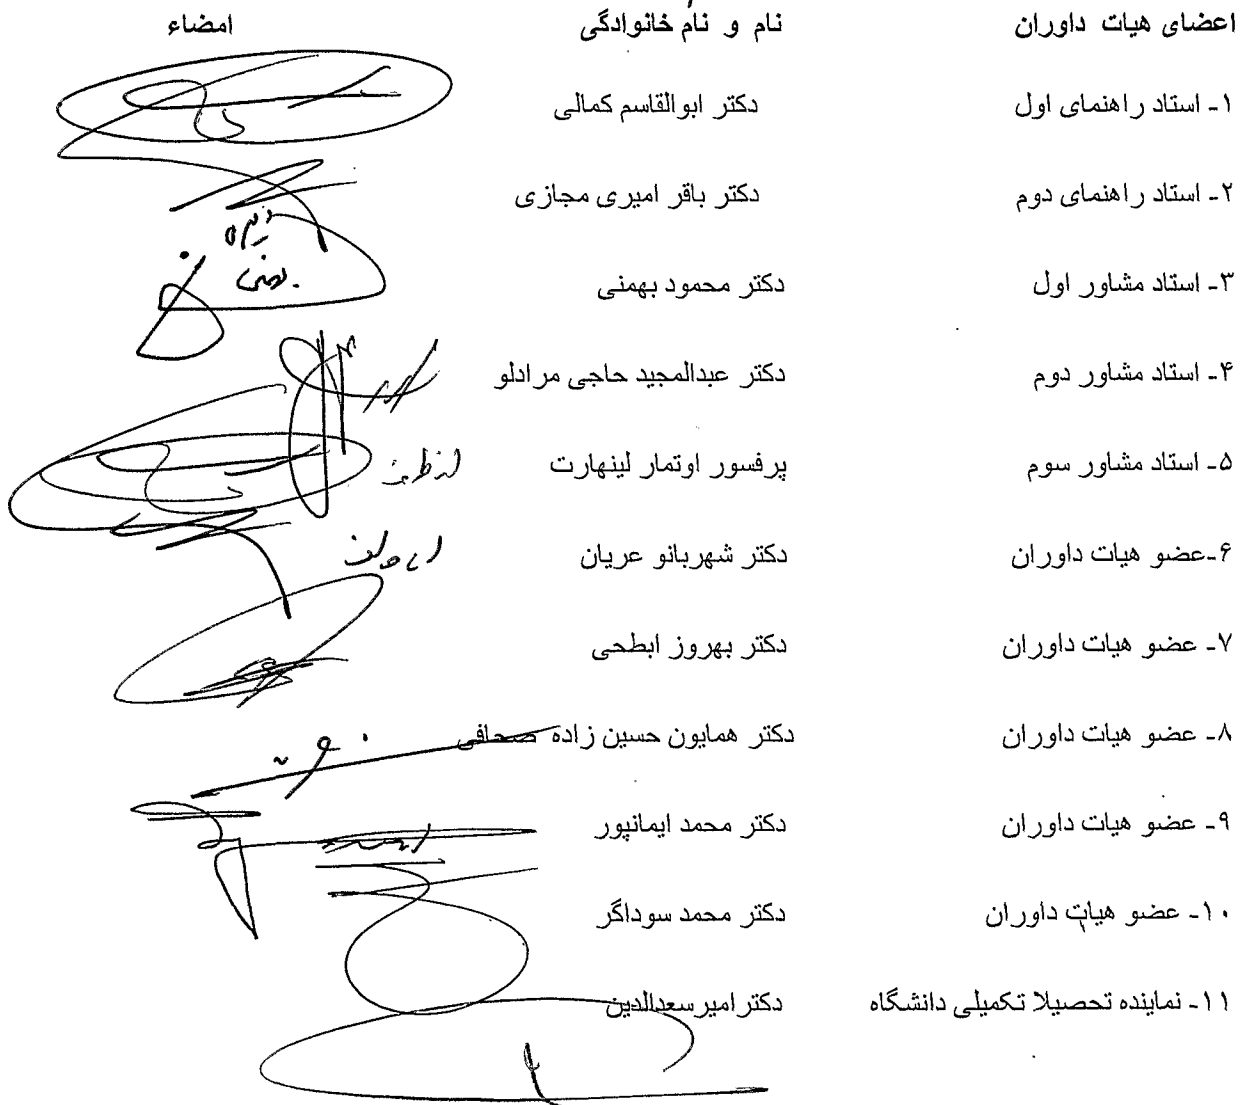 اعضای هیات داوران نام و نام خانوادگی امضاء
۱ـ استاد راهنمای اول دکتر ابوالقاسم کمالی
۲ـ استاد راهنمای دوم دکتر باقر امیری مجازی
۳ـ استاد مشاور اول دکتر محمود بهمنی
۴ـ استاد مشاور دوم دکتر عبدالمجید حاجی مرادلو
۵ـ استاد مشاور سوم پرفسور اوتمار لینهارت
۶ـعضو هیات داوران دکتر شهربانو عریان
۷ـ عضو هیات داوران دکتر بهروز ابطحی
۸ـ عضو هیات داوران دکتر همایون حسین زاده صحافی
۹ـ عضو هیات داوران دکتر محمد ایمانپور
۱۰ـ عضو هیات داوران دکتر محمد سوداگر
۱۱ـ نماینده تحصیلا تکمیلی دانشگاه دکتر امیرسعدالدین